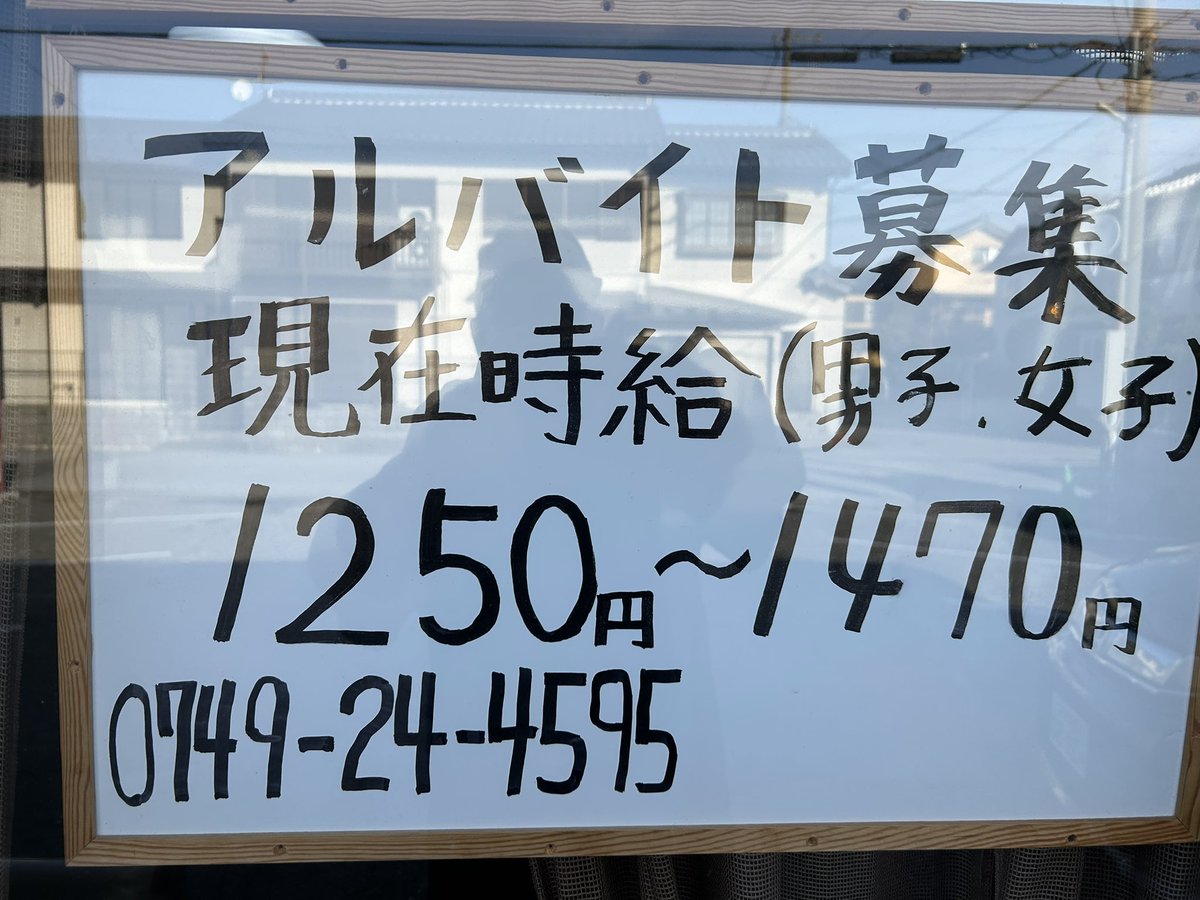 アルバイト募集
現在時給(男子.女子)
1250円～1470円
0749-24-4595